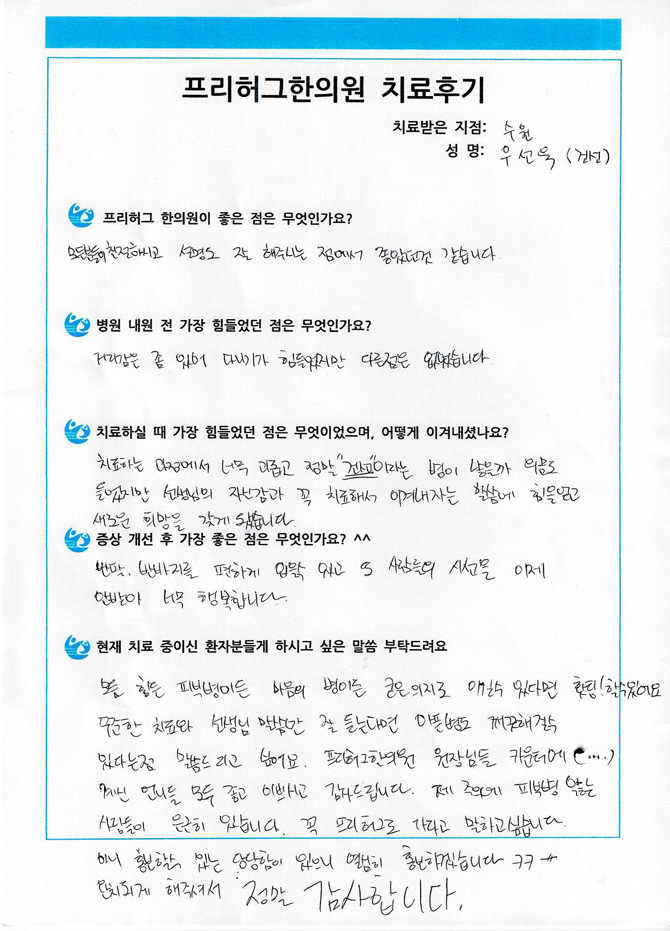 프리허그한의원 치료후기
치료받은 지점: 수원
성 명: 우선욱 (건선)
프리허그 한의원이 좋은 점은 무엇인가요?
모든분들이 친절하시고 설명도 잘 해주시는 점에서 좋았던것 같습니다
병원 내원 전 가장 힘들었던 점은 무엇인가요?
거리감은 좀 있어 다니기가 힘들었지만 다른점은 없었습니다
치료하실 때 가장 힘들었던 점은 무엇이었으며, 어떻게 이겨내셨나요?
치료하는 과정에서 너무 괴롭고 정말 "건선"이라는 병이 낳을까 의문도
들었지만 선생님의 자신감과 꼭 치료해서 이겨내자는 말씀에 힘을얻고
새로운 희망을 갖게 됐습니다.
증상 개선 후 가장 좋은 점은 무엇인가요? ^^
반팔, 반바지를 편하게 입을 수 있고 사람들의 시선을 이제
안받아 너무 행복합니다.
현재 치료 중이신 환자분들게 하시고 싶은 말씀 부탁드려요
힘든 피부병이든 마음의 병이든 굳은의지로 있다면 화팅! 할수있어요
꾸준한 치료와 선생님 말씀만 잘 듣는다면 이쁜피부도 깨끗해질수
있다는점 말씀드리고 싶어요. 프리허그한의원 원장님들 카운터에 (....)
계신 언니들 모두 좋고 이쁘시고 감사드립니다. 제 주위에 피부병 앓는
사람들이 은근히 있습니다. 꼭 프리허그로 가라고 말하고싶습니다.
이니 홍보할수 있는 당당함이 있으니 열심히 홍보하겠습니다 ㅋㅋ
완치되게 해주셔서 정말 감사합니다.